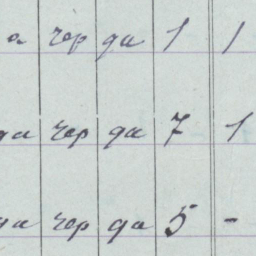 а чер да 1 1
да чер да 7 1
да чер да 5 -